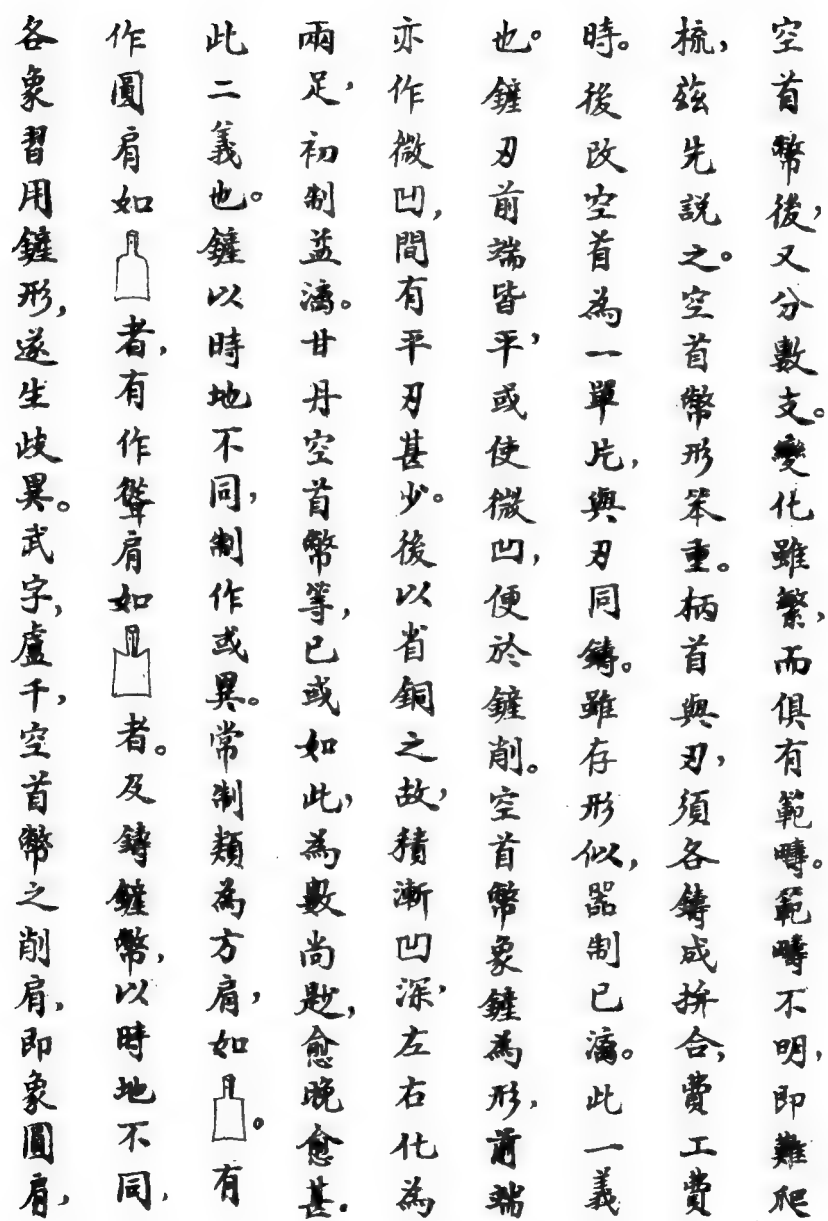 空首幣後，又分數支。變化雖繁，而俱有範疇。範疇不明，即難爬
梳，茲先説之。空首幣形笨重。柄首與刃，須各鑄成拚合，費工費
時。後改空首為一單片，與刃同鑄。雖存形似，器制已漓。此一義
也。鏟刃前端皆平，或使微凹，便於鏟削。空首幣象鏟為形，前端
亦作微凹，間有平刃甚少。後以省銅之故，積漸凹深，左右化為
兩足，初制益漓。甘丹空首幣等，已或如此，為數尚尟，愈晚愈甚。
此二義也。鏟以時地不同，制作或異。常制類為方肩，如。有
作圓肩如者，有作聳肩如者。及鑄鏟幣，以時地不同，
各象習用鏟形，遂生歧異。武字，盧千，空首幣之削肩，即象圓肩，